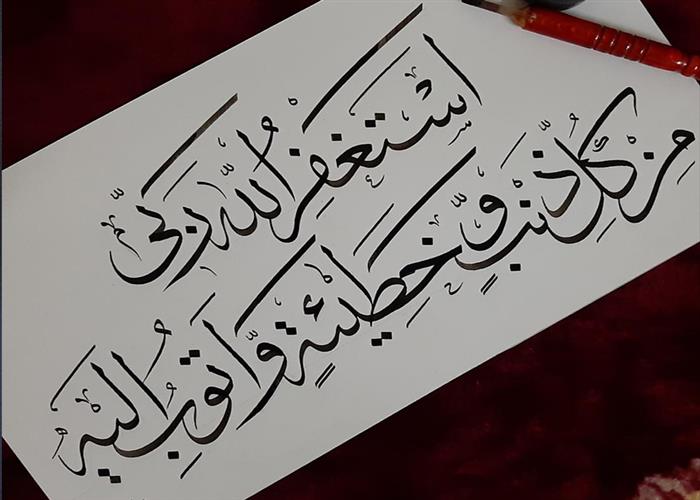 اَسْتَغْفِرُ اللهَ رَبِّیْ
مِنْ کُلِّ ذَنْبٍ وَّخَطِیْئَةٍ وَّاَتُوْبُ اِلَیْهِ